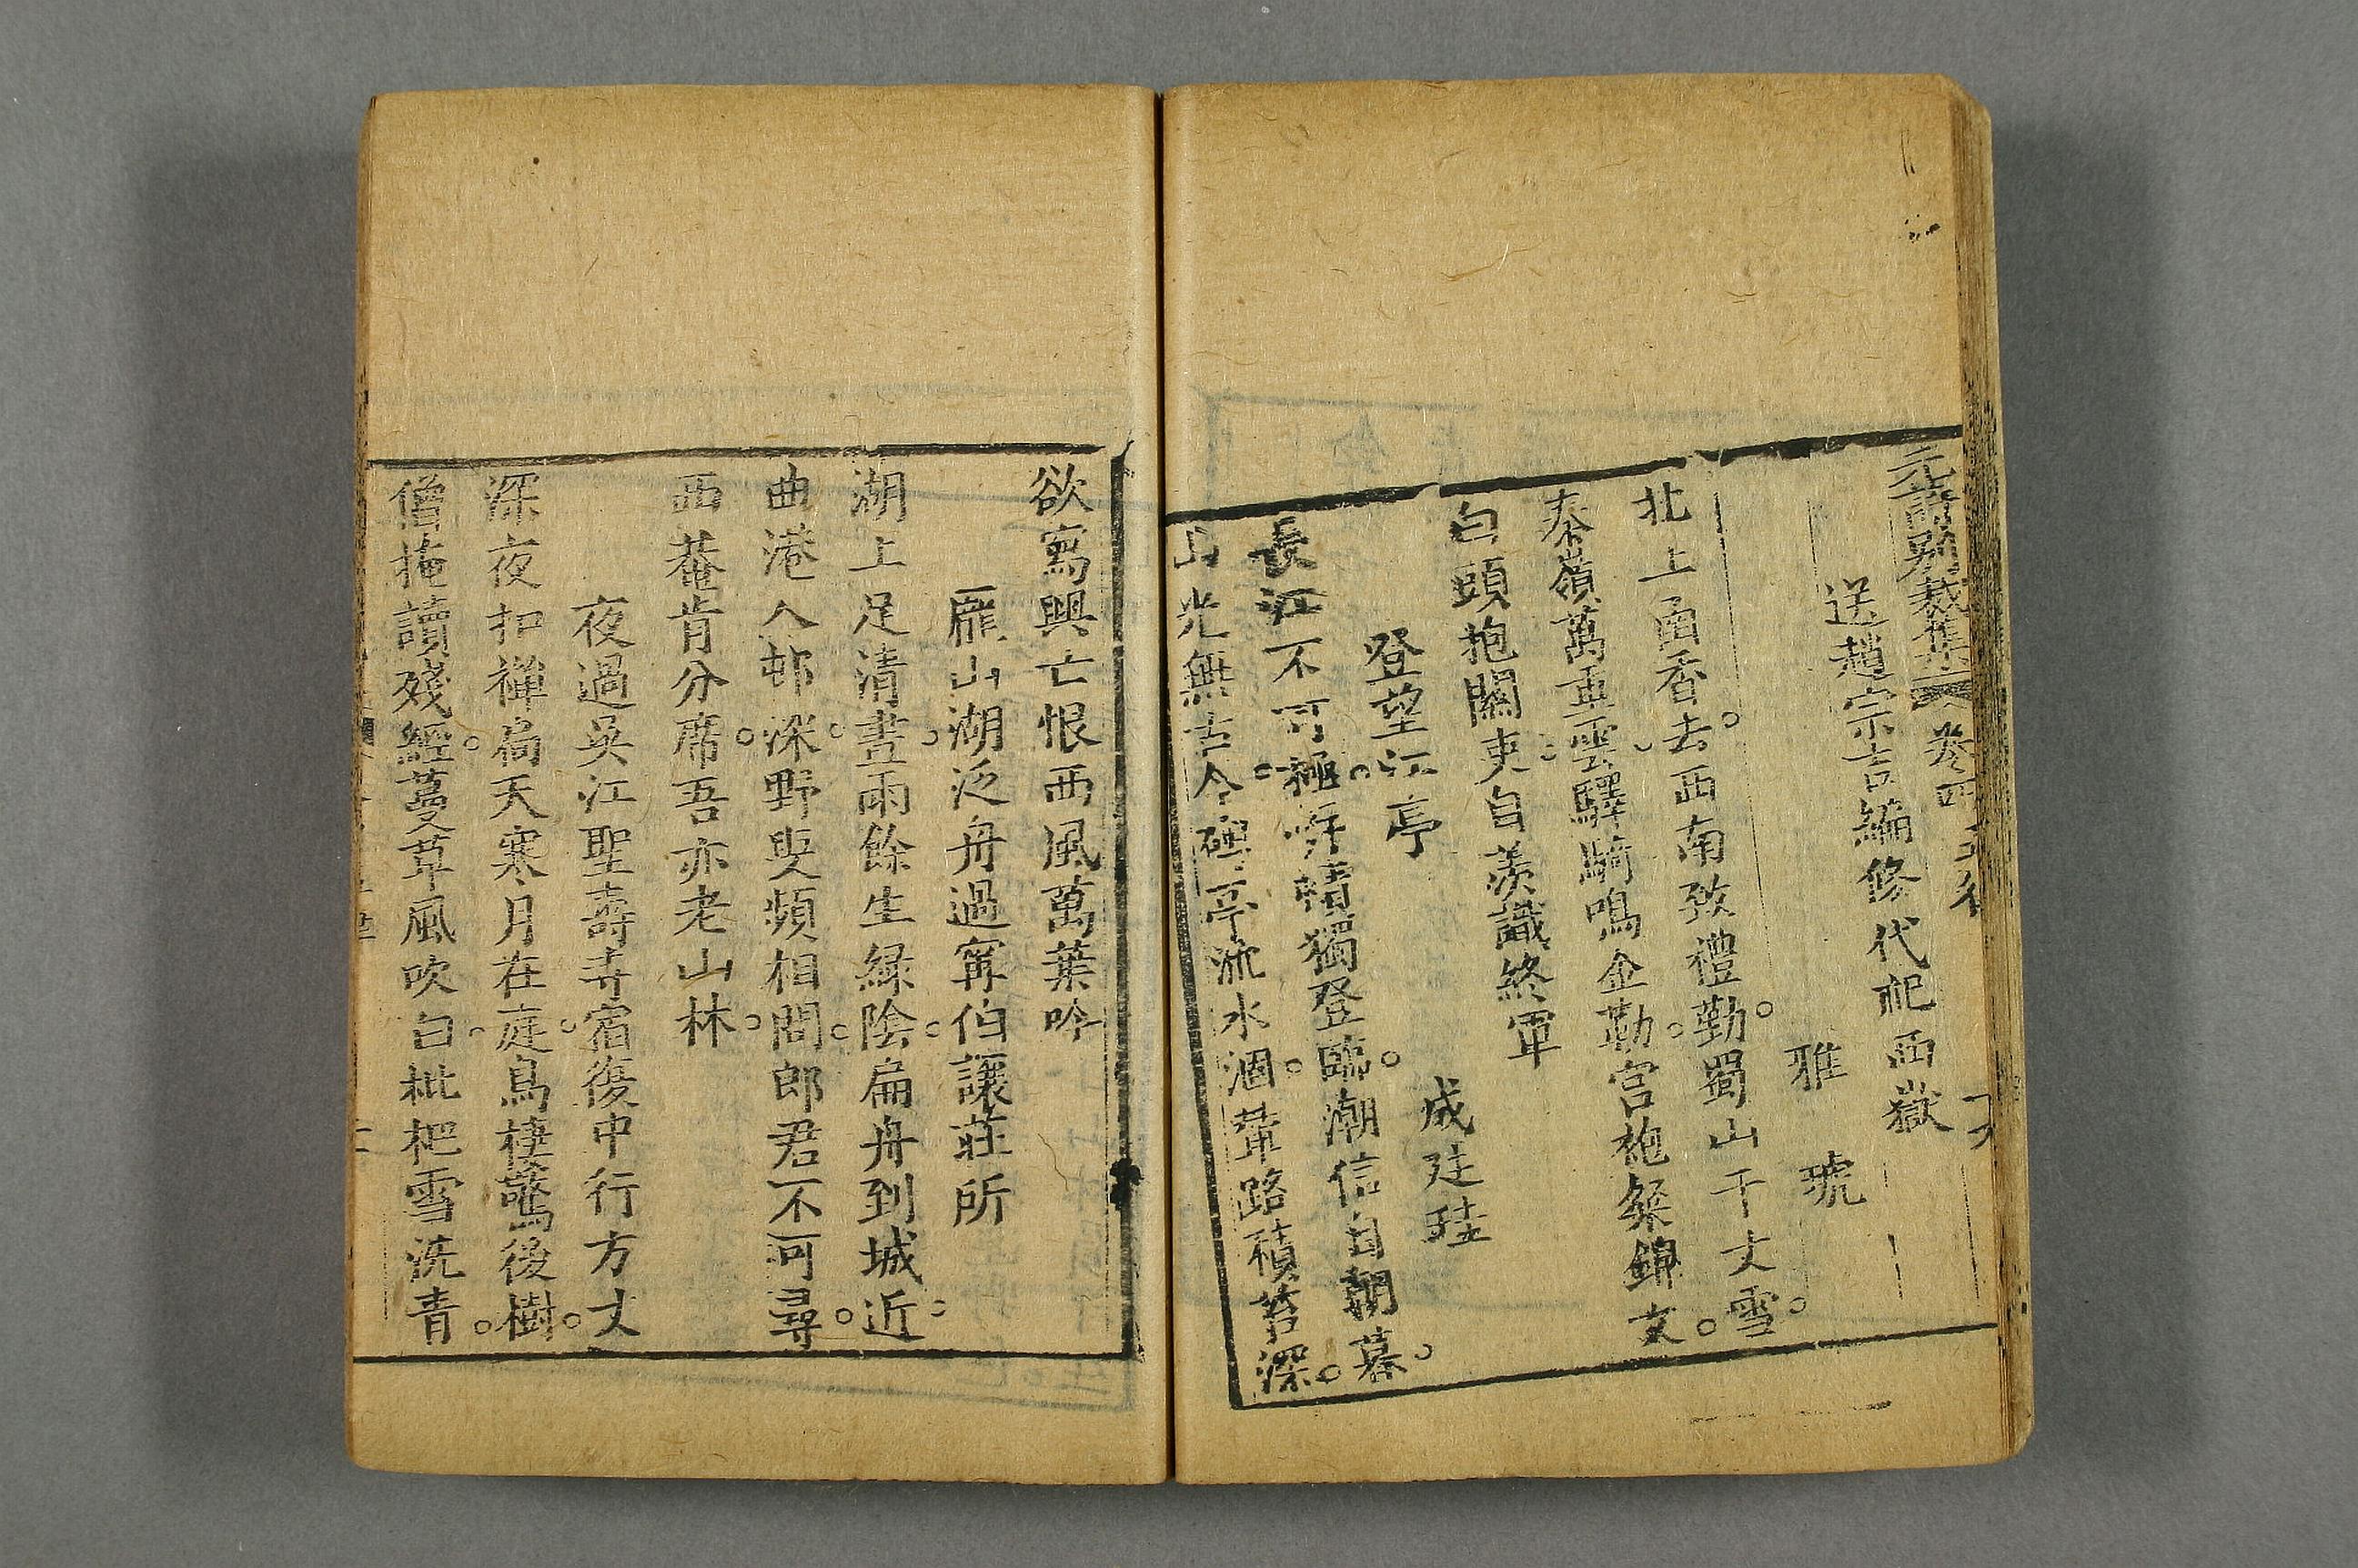 元詩別裁集 卷四 五律
送趙宗吉編修代祀西嶽
雅琥
北上函香去西南致禮勤蜀山千丈雪
秦嶺萬重雲驛騎鳴金勒宮袍粲錦文
白頭抱關吏自羨識終軍
登望江亭
成廷珪
長江不可極時獨登臨潮信自朝暮
山光無古今礎亭流水涸輦路積苔深
欲寫興亡恨西風萬葉吟
龎山湖泛舟過甯伯讓莊所
湖上足清晝雨餘生綠陰扁舟到城近
曲港入邨深野叟頻相問郎君不可尋
西菴肯分席吾亦老山林
夜過吳江聖壽寺宿復中行方丈
深夜扣禪扃天寒月在庭鳥棲驚後樹
僧掩讀殘經蔓草風吹白枇杷雪洗青